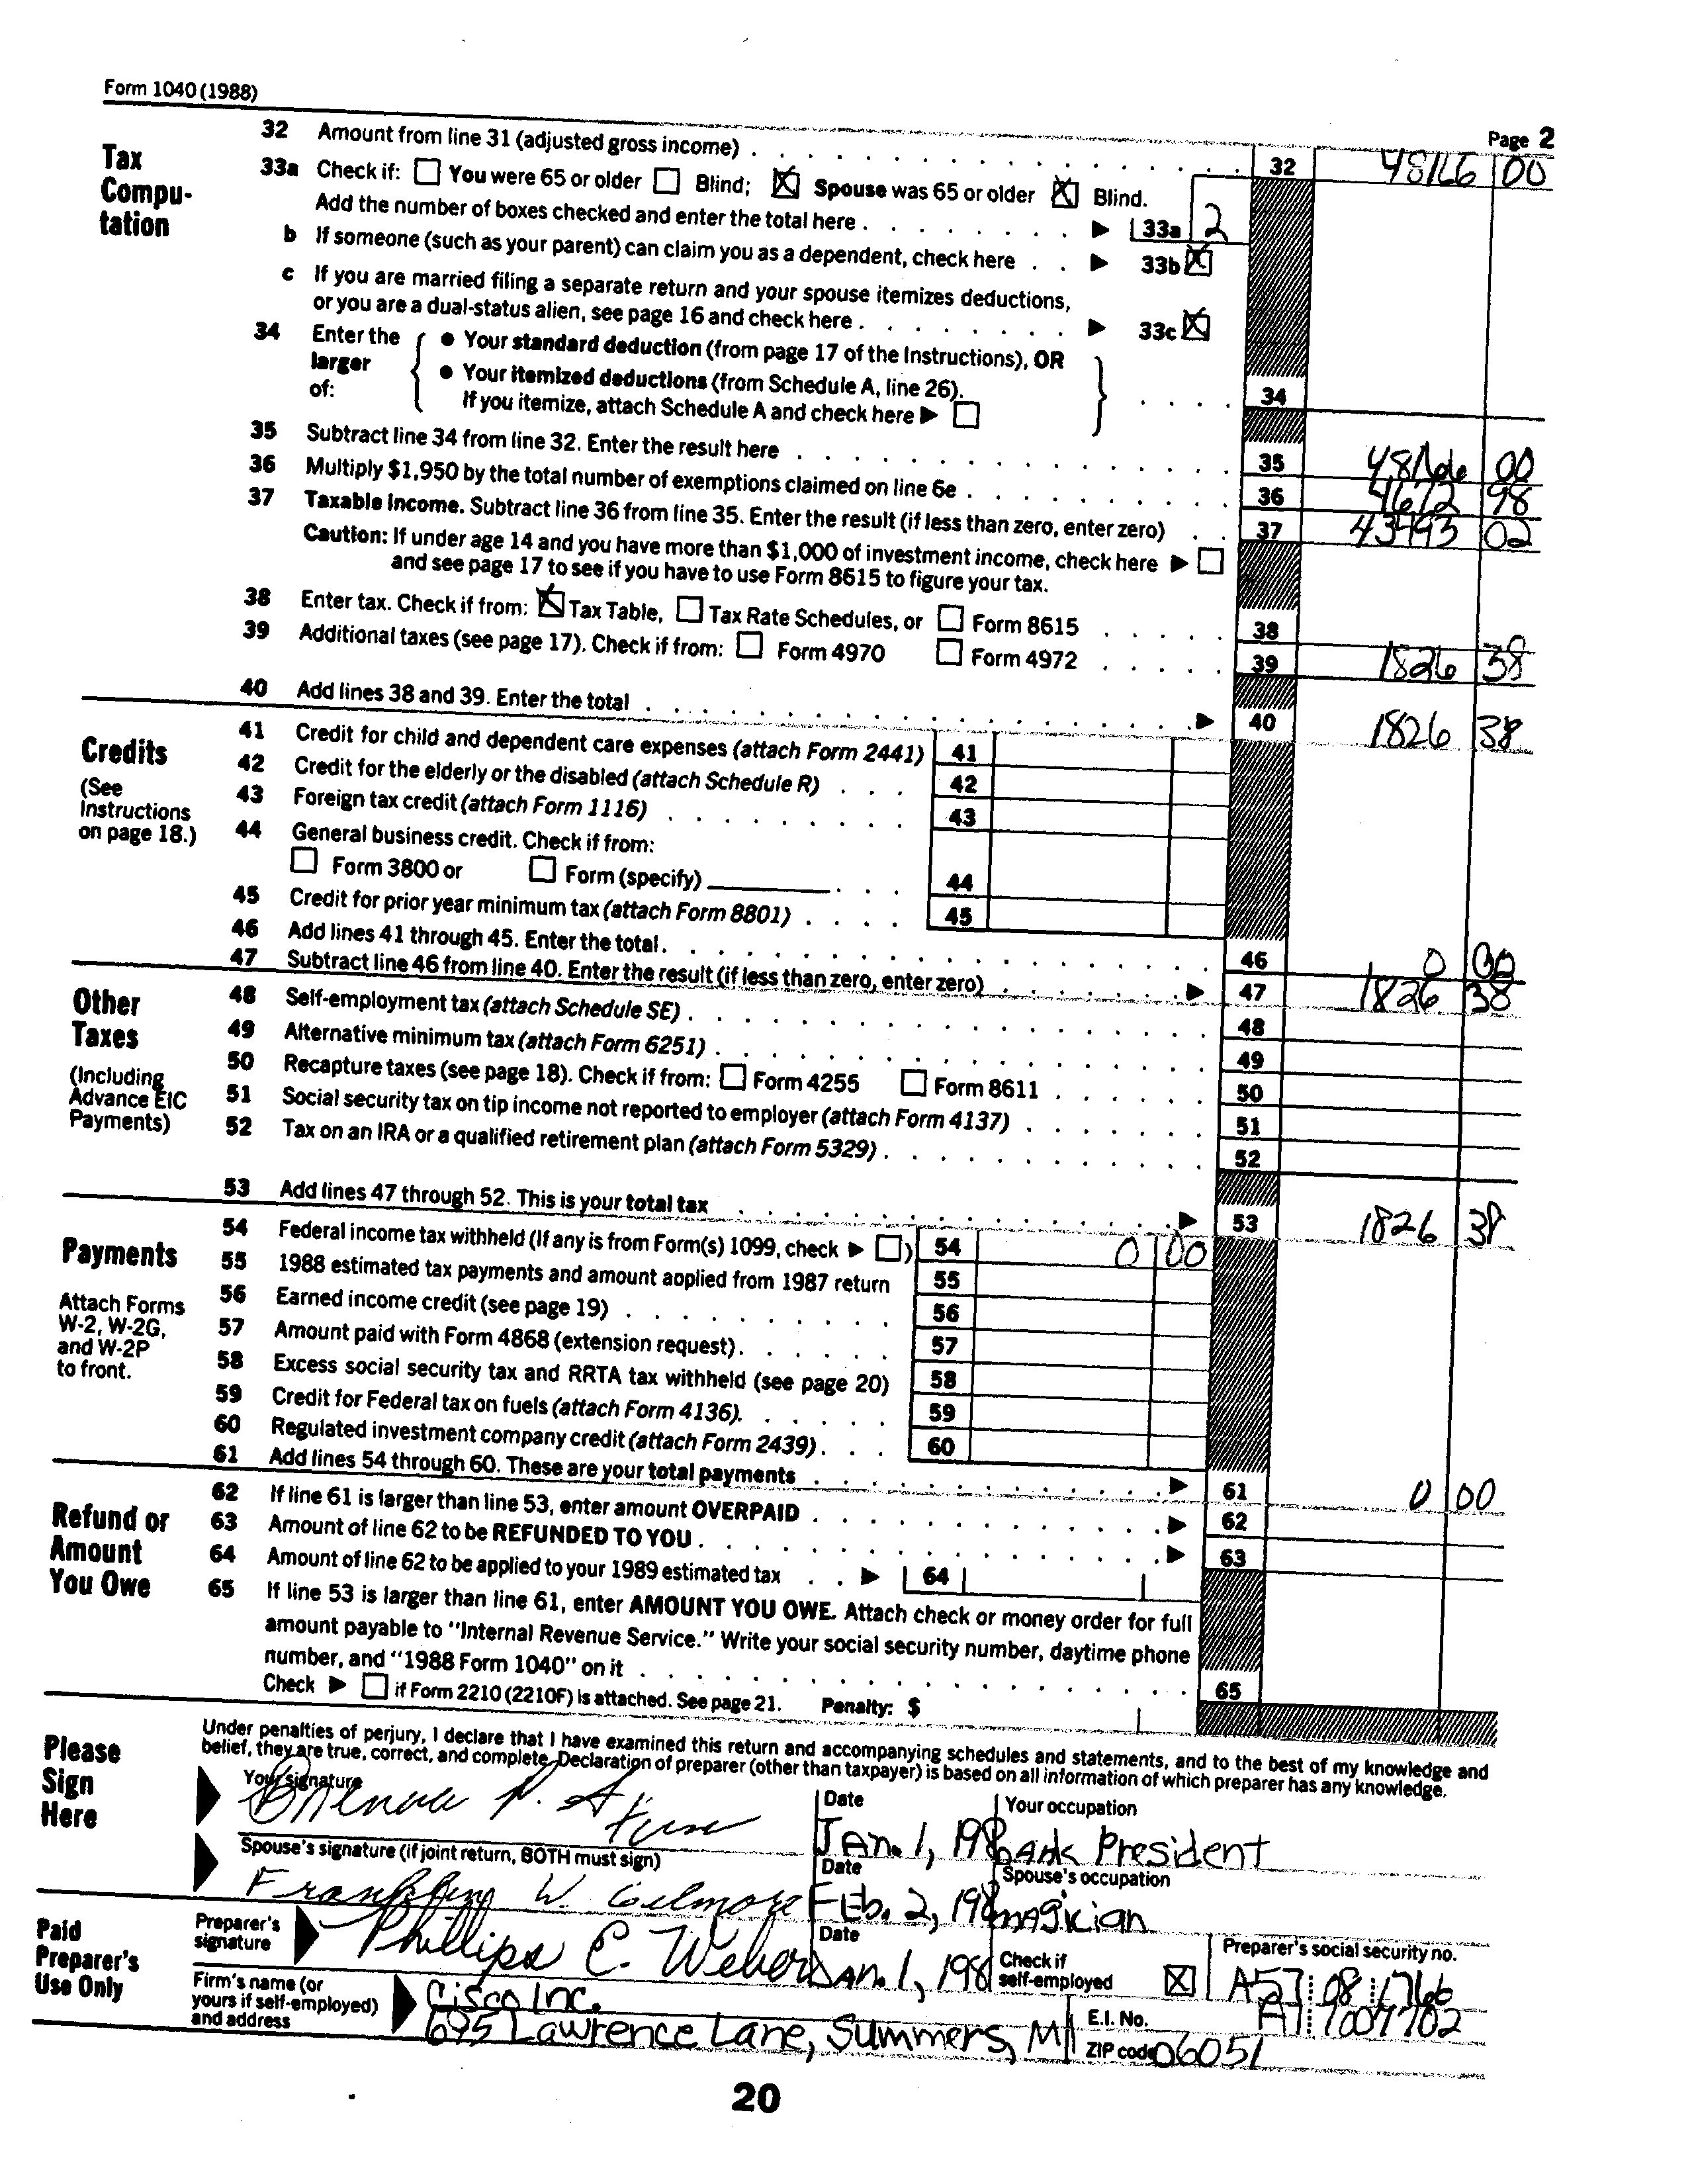 Form 1040 (1988)
Page 2
Tax Compu-tation
32 Amount from line 31 (adjusted gross income) . . . . 32 48166 00
33a Check if: ☐ You were 65 or older ☐ Blind; ☒ Spouse was 65 or older ☒ Blind.
Add the number of boxes checked and enter the total here . . . ▶ 33a 2
b If someone (such as your parent) can claim you as a dependent, check here . . ▶ 33b ☒
c If you are married filing a separate return and your spouse itemizes deductions,
or you are a dual-status alien, see page 16 and check here . . . ▶ 33c ☒
34 Enter the larger of:
● Your standard deduction (from page 17 of the Instructions), OR
● Your itemized deductions (from Schedule A, line 26).
If you itemize, attach Schedule A and check here ▶ ☐ . . . . 34
35 Subtract line 34 from line 32. Enter the result here . . . 35 48166 00
36 Multiply $1,950 by the total number of exemptions claimed on line 6e . . . 36 4672 98
37 Taxable income. Subtract line 36 from line 35. Enter the result (if less than zero, enter zero) . . 37 43493 02
Caution: If under age 14 and you have more than $1,000 of investment income, check here ▶ ☐
and see page 17 to see if you have to use Form 8615 to figure your tax.
38 Enter tax. Check if from: ☒ Tax Table, ☐ Tax Rate Schedules, or ☐ Form 8615 . . . . 38
39 Additional taxes (see page 17). Check if from: ☐ Form 4970 ☐ Form 4972 . . . . 39 1826 38
40 Add lines 38 and 39. Enter the total . . . ▶ 40 1826 38
Credits
(See Instructions on page 18.)
41 Credit for child and dependent care expenses (attach Form 2441) 41
42 Credit for the elderly or the disabled (attach Schedule R) . . . 42
43 Foreign tax credit (attach Form 1116) . . . 43
44 General business credit. Check if from:
☐ Form 3800 or ☐ Form (specify) . . . 44
45 Credit for prior year minimum tax (attach Form 8801) . . . . 45
46 Add lines 41 through 45. Enter the total . . . 46 0 00
47 Subtract line 46 from line 40. Enter the result (if less than zero, enter zero) . . . ▶ 47 1826 38
Other Taxes
(Including Advance EIC Payments)
48 Self-employment tax (attach Schedule SE) . . . 48
49 Alternative minimum tax (attach Form 6251) . . . 49
50 Recapture taxes (see page 18). Check if from: ☐ Form 4255 ☐ Form 8611 . . . 50
51 Social security tax on tip income not reported to employer (attach Form 4137) . . . 51
52 Tax on an IRA or a qualified retirement plan (attach Form 5329) . . . 52
53 Add lines 47 through 52. This is your total tax . . . ▶ 53 1826 38
Payments
Attach Forms W-2, W-2G, and W-2P to front.
54 Federal income tax withheld (If any is from Form(s) 1099, check ▶ ☐) 54 0 00
55 1988 estimated tax payments and amount applied from 1987 return 55
56 Earned income credit (see page 19) . . . 56
57 Amount paid with Form 4868 (extension request) . . . 57
58 Excess social security tax and RRTA tax withheld (see page 20) 58
59 Credit for Federal tax on fuels (attach Form 4136). . . . 59
60 Regulated investment company credit (attach Form 2439) . . . 60
61 Add lines 54 through 60. These are your total payments . . . ▶ 61 0 00
Refund or Amount You Owe
62 If line 61 is larger than line 53, enter amount OVERPAID . . . ▶ 62
63 Amount of line 62 to be REFUNDED TO YOU . . . ▶ 63
64 Amount of line 62 to be applied to your 1989 estimated tax . . ▶ 64
65 If line 53 is larger than line 61, enter AMOUNT YOU OWE. Attach check or money order for full
amount payable to "Internal Revenue Service." Write your social security number, daytime phone
number, and "1988 Form 1040" on it . . . 65
Check ▶ ☐ if Form 2210 (2210F) is attached. See page 21. Penalty: $
Please Sign Here
Under penalties of perjury, I declare that I have examined this return and accompanying schedules and statements, and to the best of my knowledge and
belief, they are true, correct, and complete. Declaration of preparer (other than taxpayer) is based on all information of which preparer has any knowledge.
Your signature
Date
JAN. 1, 198
Your occupation
BANK President
Spouse's signature (if joint return, BOTH must sign)
Franklin W. Gilmore
Date
FEb. 2, 198
Spouse's occupation
magician
Paid Preparer's Use Only
Preparer's signature
Phillips C. Weber
Date
JAN. 1, 198
Check if self-employed ☒
Preparer's social security no.
A57 08 1766
Firm's name (or yours if self-employed) and address
Cisco Inc.
695 Lawrence Lane, Summers, MI
E.I. No. A1 7004702
ZIP code 06051
20